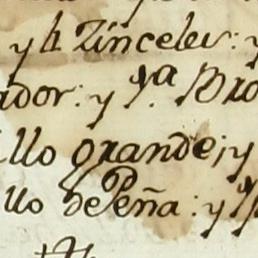 y h Zinceles: y
ador: y Ya. Bro
llo grande; y
llo de Peña: y